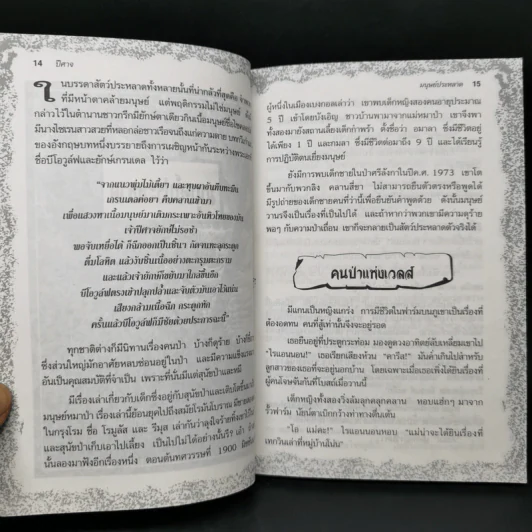 14 ปีศาจ
ในบรรดาสัตว์ประหลาดทั้งหลายนั้นที่น่ากลัวที่สุดคือ
ที่มีหน้าตาคล้ายมนุษย์ แต่พฤติกรรมไม่ใช่มนุษย์
กล่าวไว้ในตำนานชาวกรีกมียักษ์ตาเดียวกินเนื้อมนุษย์
มีนางไซเรนสาวสวยที่หลอกล่อชาวเรือจนถึงแก่ความตาย
ของอังกฤษบทหนึ่งบรรยายถึงการเผชิญหน้ากันระหว่าง
ชื่อบีโอวูล์ฟและยักษ์เกรนเดล ไว้ว่า
“จากแนวพุ่มไม้เตี้ยว และหุบผาอันทึบทะมึน
เกรนเดลค่อยๆ คืบคลานเข้ามา
เพื่อแสวงหาเนื้อมนุษย์มาเติมกระเพาะอันหิวโหยของมัน
เจ้าปีศาจยักษ์ไม่รอช้า
พอจับเหยื่อได้ ก็ฉีกออกเป็นเสี่ยงๆ กัดจนทะลุกระดูก
ดื่มโลหิต แล้วงับชิ้นเนื้ออย่างตะกรุมตะกราม
และแล้วเจ้ายักษ์ก็ขยับมาใกล้ขึ้นอีก
บีโอวูล์ฟตรงเข้าปลุกปล้ำและจับตัวมันเอาไว้แน่น
เสียงกล้ามเนื้อฉีก กระดูกหัก
ครั้นแล้วบีโอวูล์ฟก็มีชัยด้วยประการฉะนี้”
ทุกชาติต่างก็มีนิทานเรื่องคนป่า บ้างก็ดุร้าย
ซึ่งส่วนใหญ่มักอาศัยหลบซ่อนอยู่ในป่า และมีความแข็งแรง
อันเป็นคุณสมบัติที่จำเป็น เพราะที่นั่นมีแต่สุนัขป่าและหมี
มีเรื่องเล่าเกี่ยวกับเด็กซึ่งอยู่กับสุนัขป่าและเติบโตขึ้น
มนุษย์หมาป่า เรื่องเล่านี้ย้อนยุคไปถึงสมัยโรมันโบราณ
ในกรุงโรม ชื่อ โรมูลัส และ รีมุส เล่ากันว่าถูกใจร้ายทิ้ง
และสุนัขป่าเก็บเอาไปเลี้ยง เป็นไปไม่ได้อย่างนั้นรึ?
นั้นลองมาฟังอีกเรื่องหนึ่ง ตอนต้นทศวรรษที่ 1900
มนุษย์ประหลาด 15
ผู้หนึ่งในเมืองเบงกอลเล่าว่า เขาพบเด็กหญิงสองคนอายุประมาณ
5 ปี เข้าโดยบังเอิญ ชาวบ้านพามาจากแม่หมาป่า เขาจึงพา
ทั้งสองมายังสถานเลี้ยงเด็กกำพร้า ตั้งชื่อว่า อมาลา ซึ่งมีชีวิตอยู่
ได้เพียง 1 ปี และกมลา ซึ่งมีชีวิตต่อมาถึง 9 ปี และได้เรียนรู้
การปฏิบัติตนเยี่ยงมนุษย์
ยังมีการพบเด็กชายในป่าศรีลังกาในปีค.ศ. 1973 เขาโต
ขึ้นมากับพวกลิง คลานสี่ขา ไม่สามารถยืนตัวตรงหรือพูดได้
มีรูปถ่ายของเด็กชายคนที่ว่านี้เพื่อยืนยันคำพูดด้วย ดังนั้นมนุษย์
วานรจึงเป็นเรื่องที่เป็นไปได้ และถ้าหากว่าพวกเขามีความดุร้าย
พอๆ กับความป่าเถื่อน เขาก็จะกลายเป็นสัตว์ประหลาดตัวจริงได้
คนป่าแห่งเวลส์
มีแกนเป็นหญิงแกร่ง การมีชีวิตในฟาร์มบนภูเขาเป็นเรื่องที่
ต้องอดทน คนที่สู้เท่านั้นจึงจะอยู่รอด
เธอยืนอยู่ที่ประตูกระท่อม มองดูดวงอาทิตย์ลับเหลี่ยมเขาไป
“โรแนนนอน!” เธอเรียกเสียงห้วน “คารีส!” มันค่ำเกินไปสำหรับ
ลูกสาวของเธอที่จะอยู่นอกบ้าน โดยเฉพาะเมื่อเธอเพิ่งได้ยินเรื่องที่
ผู้คนโจษจันกันที่โบสถ์เมื่อวานนี้
เด็กหญิงทั้งสองวิ่งล้มลุกคลุกคลาน หอบแฮ่กๆ มาจาก
รั้วฟาร์ม นัยน์ตาเบิกกว้างท่าทางตื่นเต้น
“โอ แม่คะ!” โรแอนนอนหอบ “แม่น่าจะได้ยินเรื่องที่
เทกวินเล่าที่หมู่บ้านโน่น”